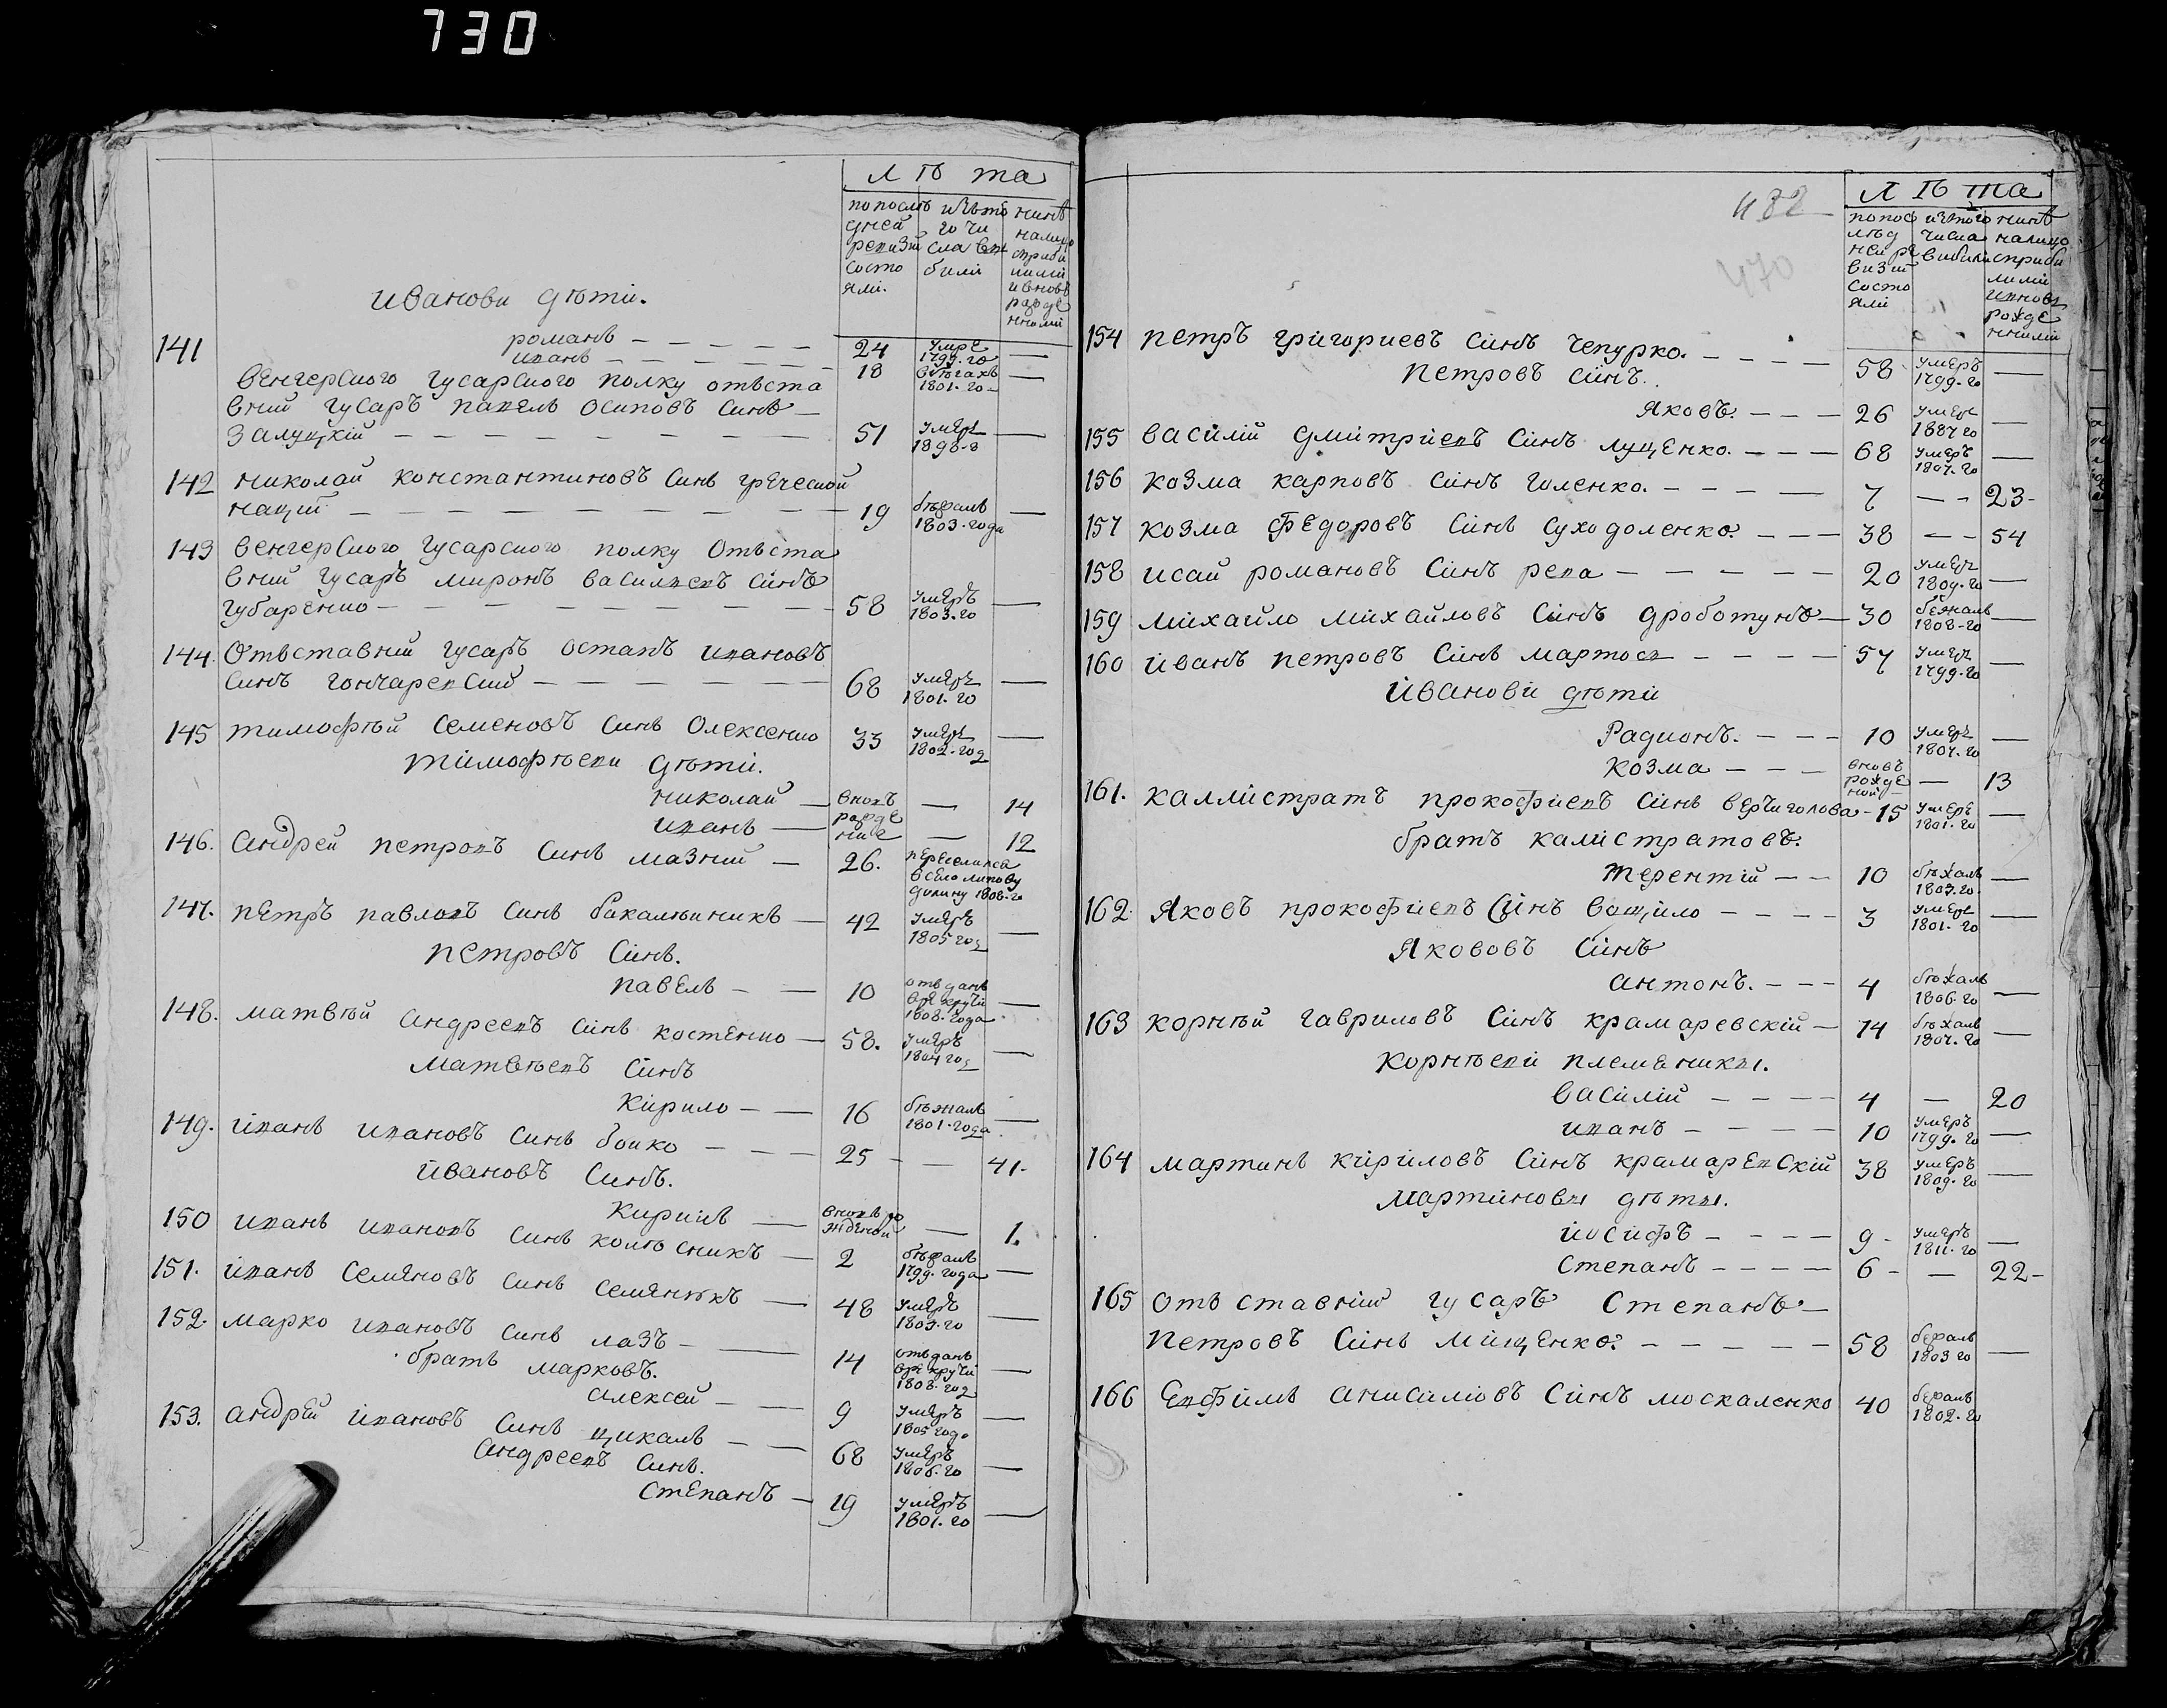 730
Л Ѣ та
по послѣ
дней
ревизи
состо
яли.
изъ то
го чи
сла вы
били
нинѣ
налицо
сприби
лими
ивновь
рожде
нними
Иванови дѣти.
141 романъ — — — — — 24 умре 1799. го —
иванъ — — — — — 18 1801. го —
венгерского гусарского полку отъста
вний гусаръ павелъ осиповъ синъ —
Залуцкій — — — — — — — — 51 умерь —
142 николай константиновъ синъ греческой
нациі — — — — — — — — 19 бѣжалъ 1803. года —
143 венгерского гусарского полку отъста
вний гусаръ миронъ василиевъ синъ
губаренко — — — — — — — — 58 умеръ 1803. го —
144. Отъставний гусаръ остапъ ивановъ
синъ гончаревский — — — — — 68 умеръ 1801. го —
145 тимофѣй семеновъ синъ Олексенко 33 умерь 1802. год —
тімофѣеви дѣти.
николай — вновъ — 14
иванъ — рожде ние — 12
146. андрей петровъ синъ мазний — 26. переселился в село липову долину 1808. го
147. петръ павловъ синъ бакалѣиникъ — 42 умеръ 1805 год —
петровъ синъ.
павелъ — — 10 отъ данъ в рекручи 1808. года —
148. матвѣй андреевъ синъ костенко — 58. умеръ 1804 год —
матвѣевъ синъ
кирило — — 16 бѣжалъ 1801. года —
149. іванъ ивановъ синъ бойко — — — 25 — — 41.
йвановъ синъ.
кирилъ — вновъ ро жденой — 1.
150 иванъ ивановъ синъ колѣсникъ — 2 бѣжалъ 1799. года —
151. іванъ семяновъ синъ семянѣкъ — 48 умеръ 1803. го —
152. марко ивановъ синъ лазъ — — 14 отъ данъ в рекручи 1808. год —
братъ марковъ.
алексей — — 9 умеръ 1805 году —
153. андрей івановъ синъ цикалъ — — 68 умеръ 1806. го —
андреевъ синъ.
степанъ — 19 умеръ 1801. го —
482
470
Л Ѣ та
по пос
лѣд
ней ре
визи
состо
яли
изъ того
числа
вибили
нинѣ
налицо
сприби
лими
ивновь
рожде
нними
154 петръ григориевъ синъ чепурко. — — — — 58 умеръ 1799. го —
петровъ синъ.
яковъ. — — — 26 умерь —
155 василій дмитриевъ синъ луценко. — — — 68 умеръ 1807. го —
156 козма карповъ синъ голенко. — — — — 7 — — 23 —
157 козма федоровъ синъ суходоленко. — — — 38 — — 54
158 исай романовъ синъ рева — — — — — 20 умеръ 1809. го —
159 михайло михайловъ синъ дроботунъ — 30 бежалъ 1808 — го —
160 йванъ петровъ синъ мартосъ — — — — 57 умерь 1799. го —
йванови дѣти
Радионъ. — — — 10 умерь 1807. го —
козма — — — вновъ рожде ной — 13
161. каллистратъ прокофиевъ синъ верчиголова — 15 умере 1801. го —
братъ калистратовъ.
терентій — — 10 бѣжалъ 1807. го —
162 яковъ прокофиевъ синъ вощило — — — — 3 умерь 1801. го —
яkововъ синъ
антонъ. — — — 4 бѣжалъ 1806. го —
163 корнѣй гавриловъ синъ крамаревскій — 14 бѣжалъ 1807. го —
корнѣеви племяникы.
василій — — — — 4 — 20
иванъ — — — — 10 умеръ 1799. го —
164 мартинъ кириловъ синъ крамаревскій 38 умеръ 1809. го —
мартиновы дѣты.
йосифъ — — — — 9 — умеръ 1811. го —
степанъ — — — — 6 — — 22 —
165 отъ ставній гусаръ Степанъ —
петровъ синъ міщенко. — — — — — 58 бежалъ 1803 го —
166 Евфимъ анисимовъ синъ москаленко 40 бежалъ 1802. го